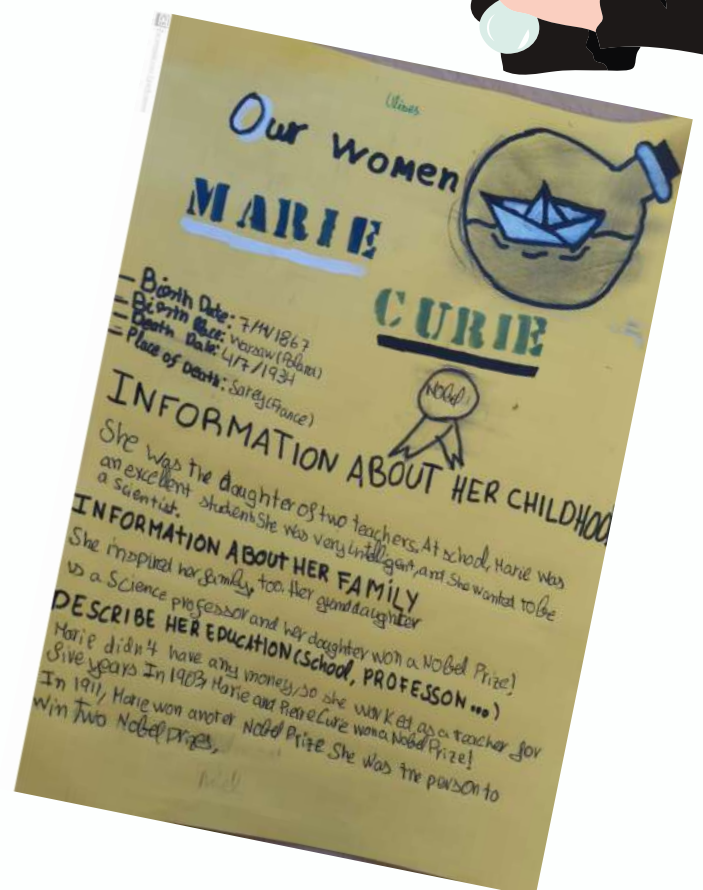 Ulises
Our women
MARIE
CURIE
- Birth Date: 7/11/1867
- Birth Place: Warsaw (Poland)
- Death Date: 4/7/1934
- Place of Death: (France)
Nobel
INFORMATION ABOUT HER CHILDHOO
She was the daughter of two teachers. At school, Marie was
an excellent student. She was very intelligent, and she wanted to be
a scientist.
INFORMATION ABOUT HER FAMILY
She inspired her family, too. Her granddaughter
is a science professor and her daughter won a Nobel Prize!
DESCRIBE HER EDUCATION (School, PROFESSON...)
Marie didn't have any money, so she worked as a teacher for
five years In 1903, Marie and Pierre Curie won a Nobel Prize!
In 1911, Marie won anoter Nobel Prize She was the person to
win two Nobel prizes,